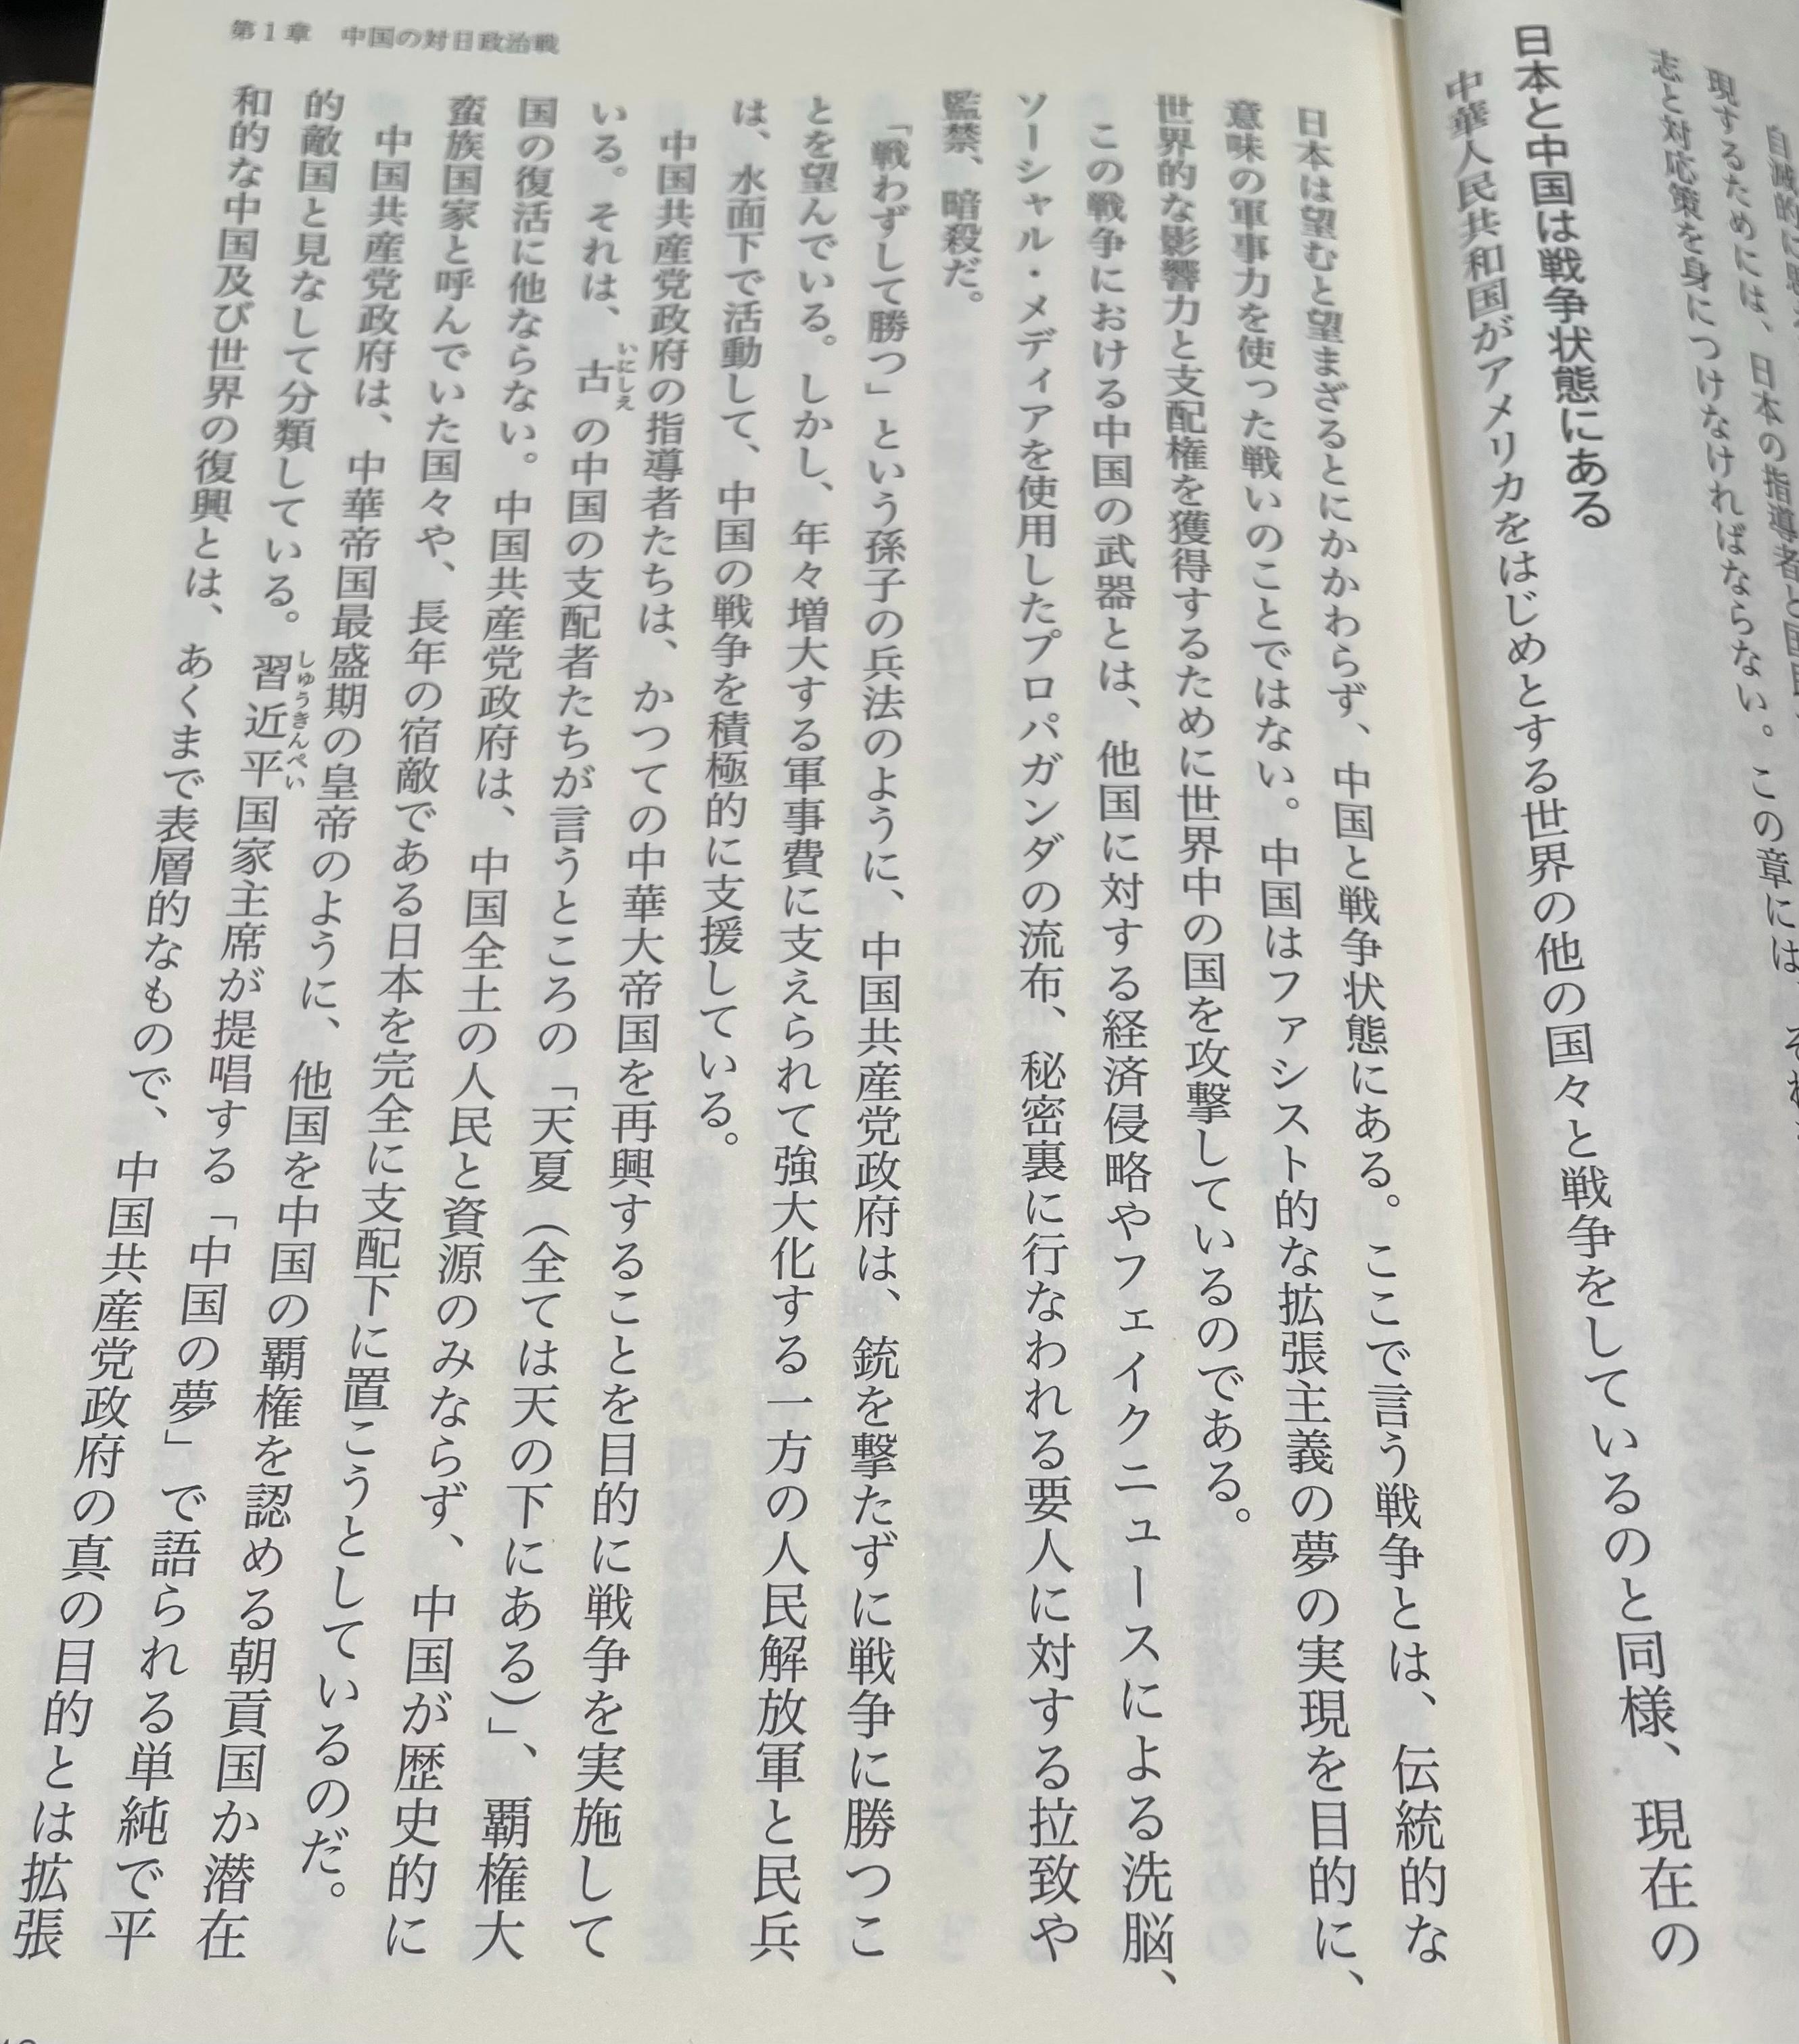 自滅的に
現するためには、日本の指導者と国民
志と対応策を身につけなければならない。この章には、それ
日本と中国は戦争状態にある
中華人民共和国がアメリカをはじめとする世界の他の国々と戦争をしているのと同様、現在の
第1章 中国の対日政治戦
日本は望むと望まざるとにかかわらず、中国と戦争状態にある。ここで言う戦争とは、伝統的な
意味の軍事力を使った戦いのことではない。中国はファシスト的な拡張主義の夢の実現を目的に、
世界的な影響力と支配権を獲得するために世界中の国を攻撃しているのである。
この戦争における中国の武器とは、他国に対する経済侵略やフェイクニュースによる洗脳、
ソーシャル・メディアを使用したプロパガンダの流布、秘密裏に行なわれる要人に対する拉致や
監禁、暗殺だ。
「戦わずして勝つ」という孫子の兵法のように、中国共産党政府は、銃を撃たずに戦争に勝つこ
とを望んでいる。しかし、年々増大する軍事費に支えられて強大化する一方の人民解放軍と民兵
は、水面下で活動して、中国の戦争を積極的に支援している。
中国共産党政府の指導者たちは、かつての中華大帝国を再興することを目的に戦争を実施して
いる。それは、古いにしえの中国の支配者たちが言うところの「天夏（全ては天の下にある）」、覇権大
国の復活に他ならない。中国共産党政府は、中国全土の人民と資源のみならず、中国が歴史的に
蛮族国家と呼んでいた国々や、長年の宿敵である日本を完全に支配下に置こうとしているのだ。
中国共産党政府は、中華帝国最盛期の皇帝のように、他国を中国の覇権を認める朝貢国か潜在
的敵国と見なして分類している。習近平しゅうきんぺい国家主席が提唱する「中国の夢」で語られる単純で平
和的な中国及び世界の復興とは、あくまで表層的なもので、中国共産党政府の真の目的とは拡張